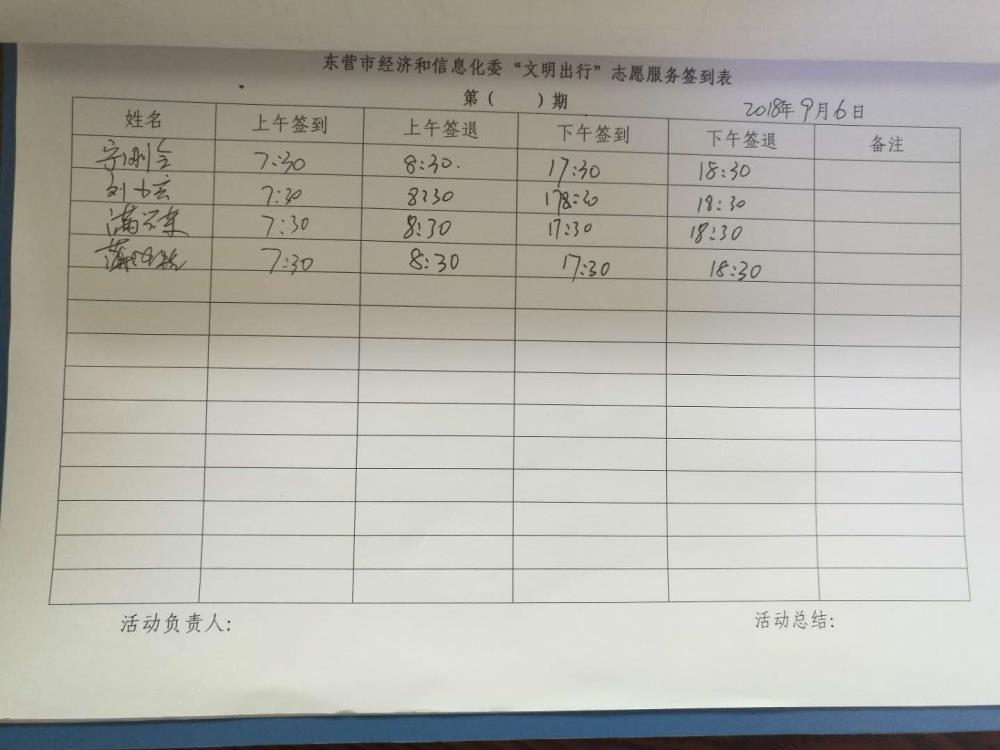 东营市经济和信息化委“文明出行”志愿服务签到表
第（ ）期
2018年9月6日
姓名 上午签到 上午签退 下午签到 下午签退 备注
7:30 8:30. 17:30 18:30
刘 7:30 8:30 178:30 18:30
满 7:30 8:30 17:30 18:30
7:30 8:30 17:30 18:30
活动负责人: 活动总结: